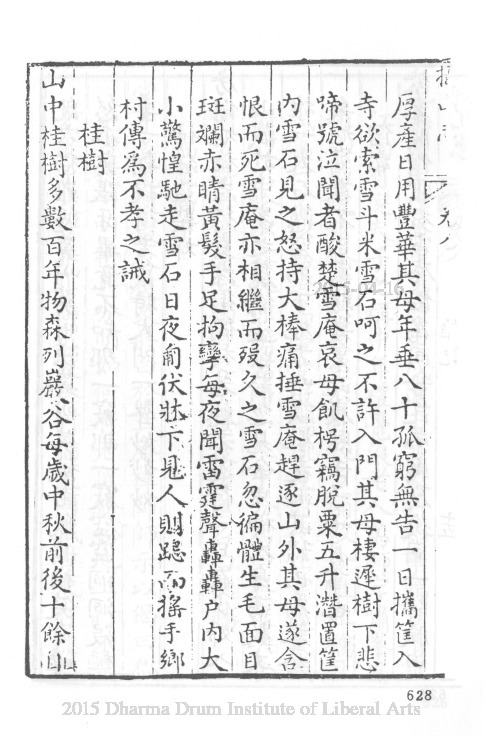 厚產日用豐華其母年垂八十孤窮無告一日攜筐入
寺欲索雪斗米雪石呵之不許入門其母棲遲樹下悲
啼號泣聞者酸楚雪庵哀母飢楞竊脫粟五升潛置筐
內雪石見之怒持大棒痛捶雪庵趕逐山外其母遂含
恨而死雪庵亦相繼而歿久之雪石忽徧體生毛面目
斑斕赤睛黃髮手足拘攣每夜聞雷霆聲轟轟戶內大
小驚惶馳走雪石日夜匍伏牀下見人則跽而搖手鄉
村傳為不孝之誡
桂樹
山中桂樹多數百年物森列巖谷每歲中秋前後十餘
628
2015 Dharma Drum Institute of Liberal Arts